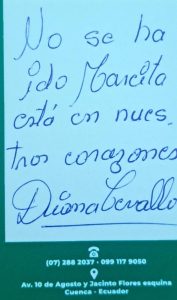 No se ha
ido Marcita
está en nues.
tros corazones
Diana Cevallo
(07) 288 2037 · 099 117 9050
Av. 10 de Agosto y Jacinto Flores esquina
Cuenca - Ecuador